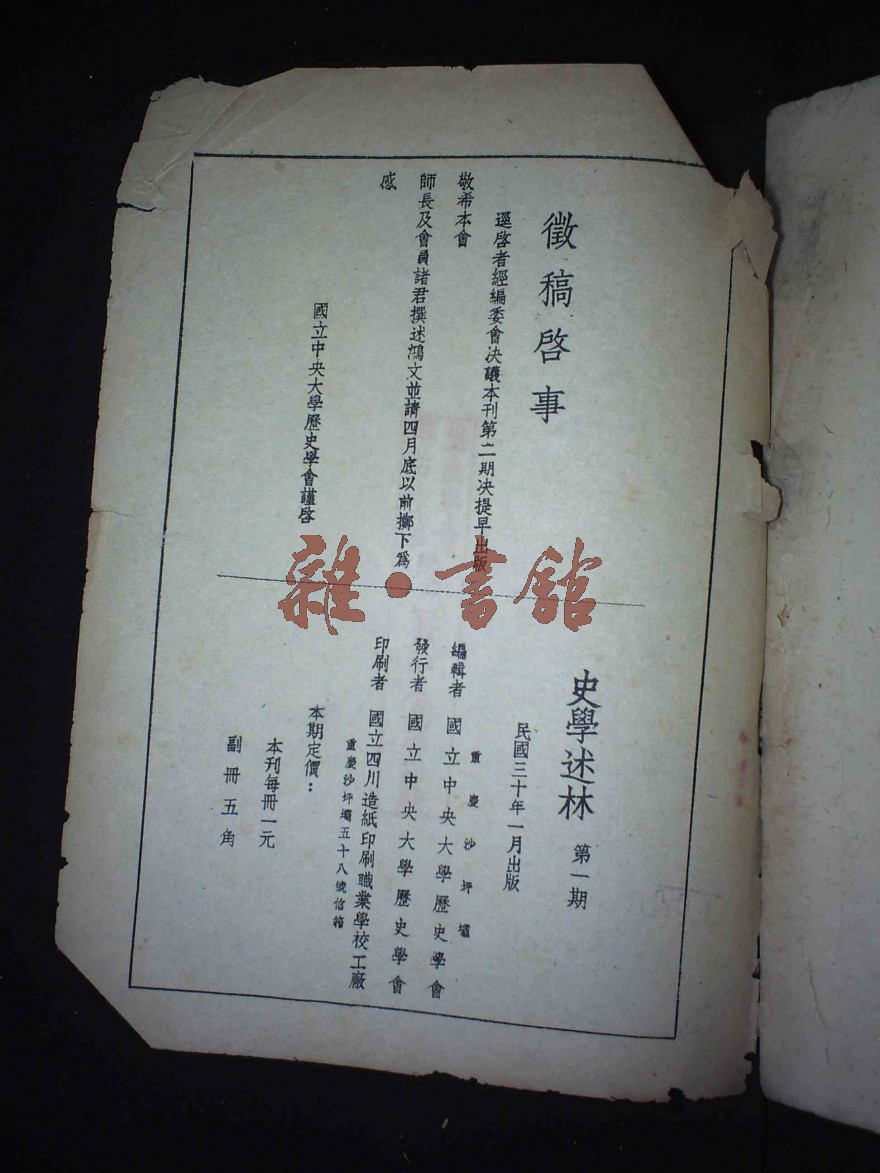 徵稿啓事
逕啓者經編委會決議本刊第二期決提早出版
敬希本會
師長及會員諸君撰述鴻文並請四月底以前擲下爲
感
國立中央大學歷史學會謹啓
史學述林 第一期
民國三十年一月出版
重慶沙坪壩
編輯者 國立中央大學歷史學會
發行者 國立中央大學歷史學會
印刷者 國立四川造紙印刷職業學校工廠
重慶沙坪壩五十八號信箱
本期定價：
本刊每冊一元
副冊五角
雜·書館